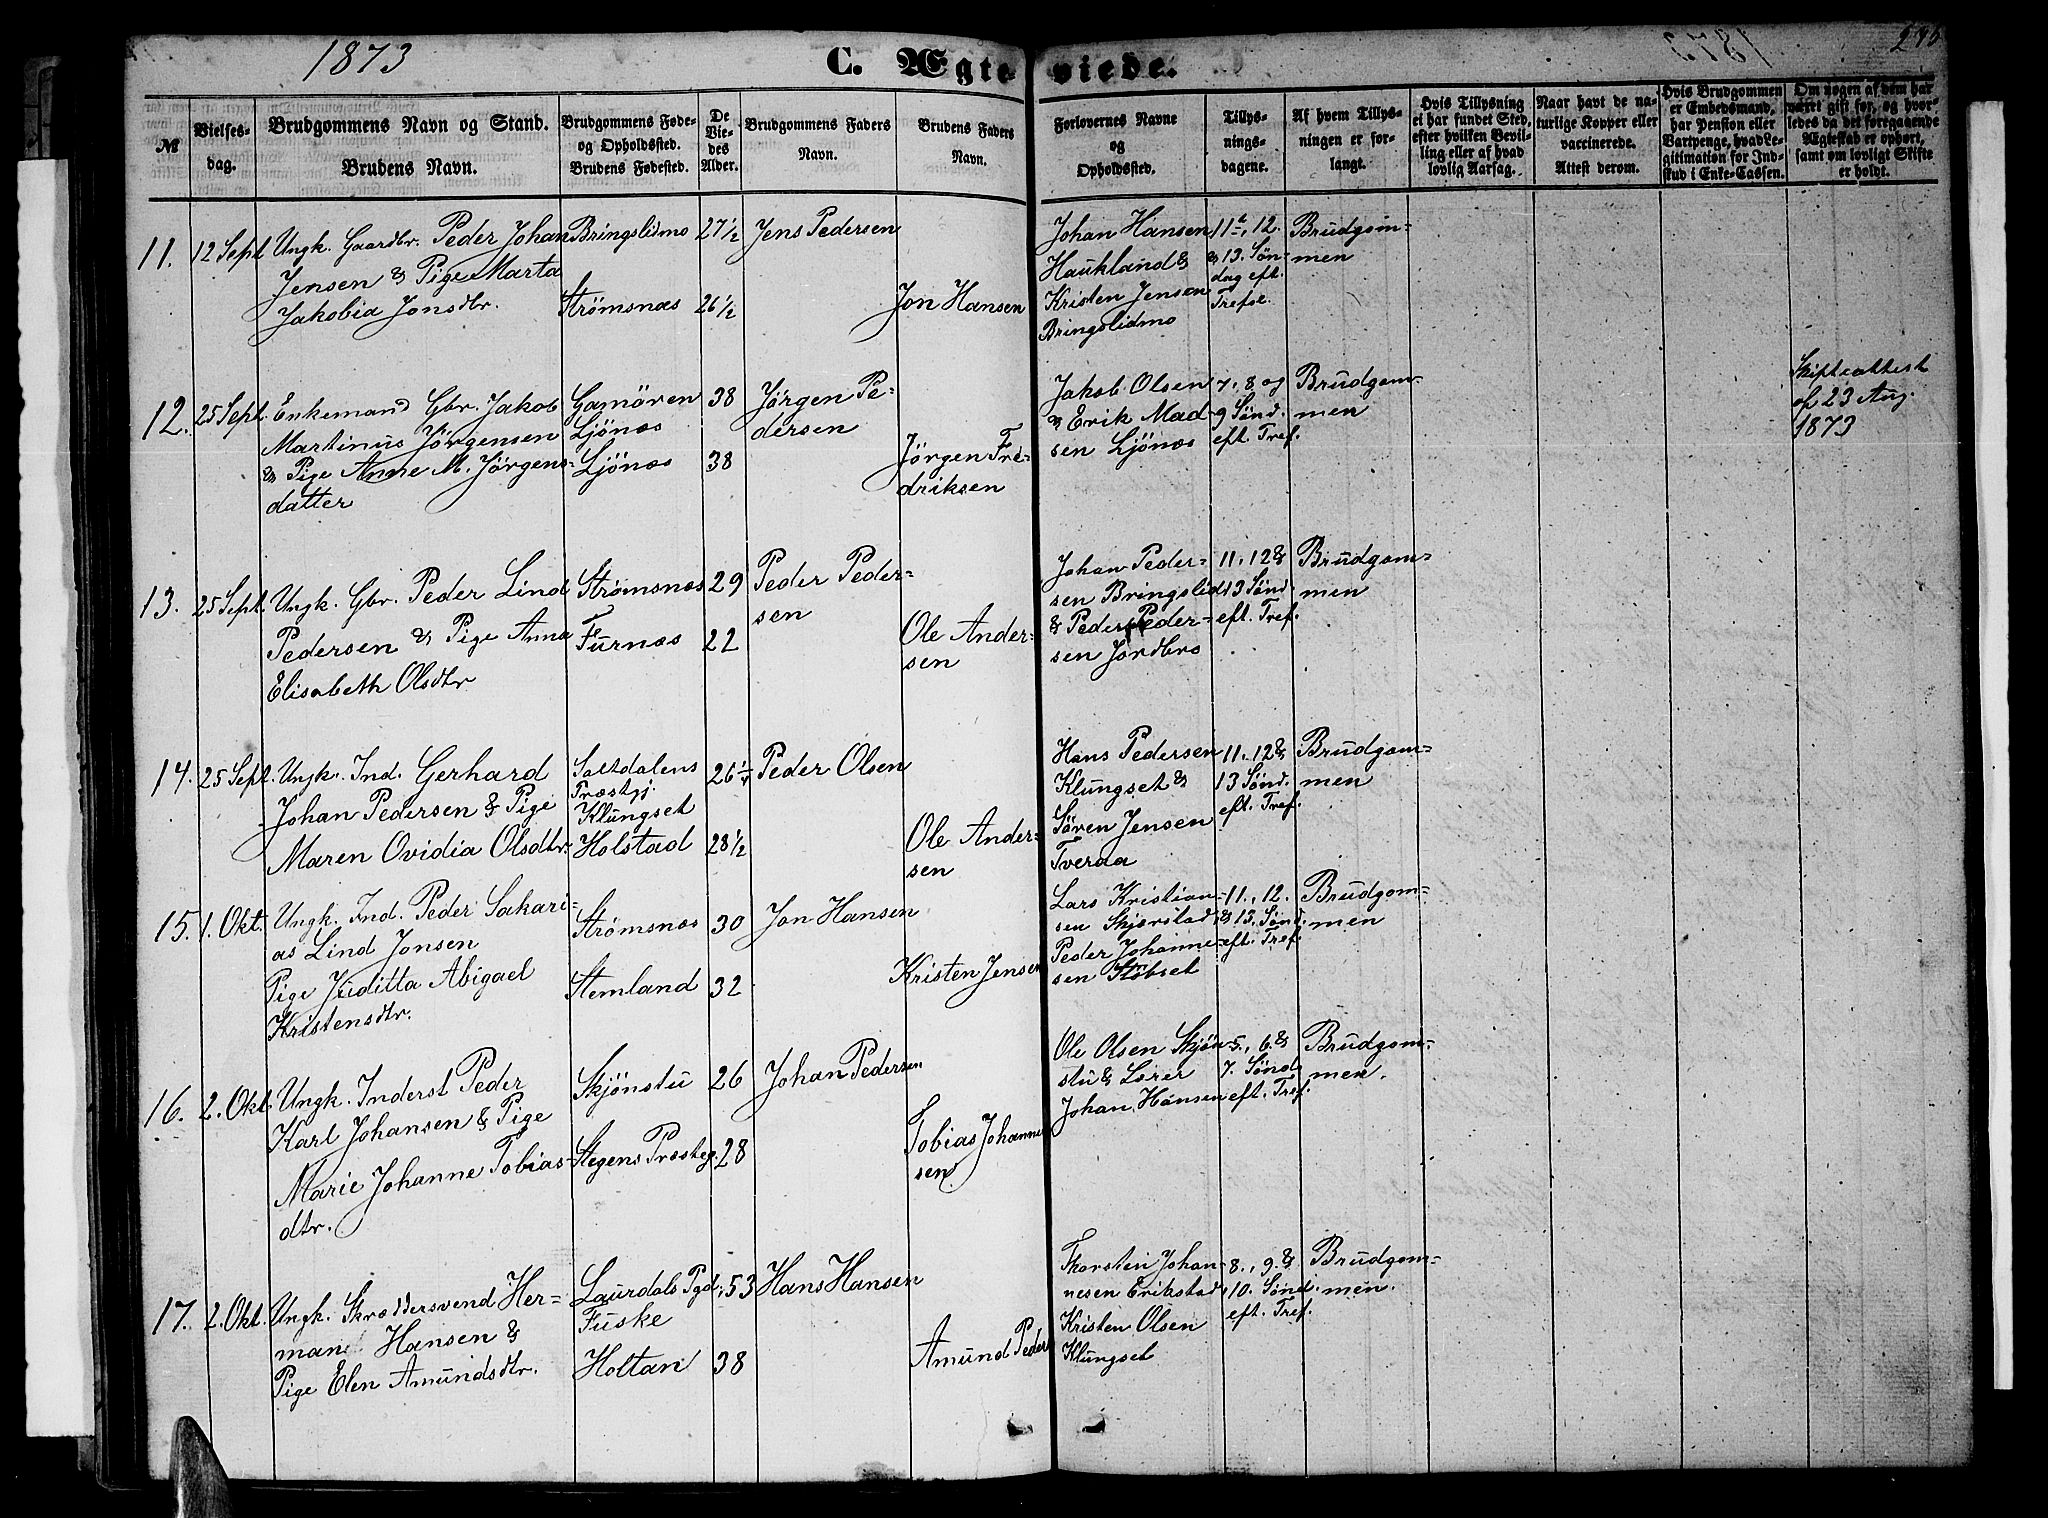 1873
C. Ægte
viede.
№
Vielses-
dag.
Brudgommens Navn og Stand.
Brudens Navn.
Brudgommens Føde-
og Opholdssted.
Brudens Fødested.
De
Vie-
des
Alder.
Brudgommens Faders
Navn.
Brudens Faders
Navn.
Forlovernes Navne
og
Opholdssted.
Tillys-
nings-
dagene.
Af hvem Tillys-
ningen er for-
langt.
Hvis Tillysning
ei har fundet Sted,
efter hvilken Bevil-
ling eller af hvad
lovlig Aarsag.
Naar havt de na-
turlige Kopper eller
vaccinerede.
Attest derom.
Hvis Brudgommen
er Embedsmand,
har Pension eller
Vartpenge, hvad Le-
gitimation for Ind-
skud i Enke-Cassen.
Om nogen af dem har
været gift før, og hvor-
ledes da det foregaaende
Ægteskab er ophørt,
samt om lovligt Skifte
er holdt.
11.
12 Sept
Ungk. Gaardbr. Peder Johan
Jensen & Pige Marta
Jakobia Jonsdtr.
Bringslidmo
Strømsnæs
27 1/2
26 1/2
Jens Pedersen
Jon Hansen
Johan Hansen
Haukland &
Kristen Jensen
Bringslidmo
11te, 12.
& 13. Søn-
dag eft.
Trefol.
Brudgom-
men
12.
25 Sept.
Enkemand Gbr. Jakob
Martinus Jörgensen
& Pige Anne M. Jörgens-
datter
Gamören
Ljönæs
Ljönæs
38
38
Jörgen Pe-
dersen
Jörgen Fre-
driksen
Jakob Olsen
& Erik Mad-
sen Ljönæs
7. 8 og
9 Sönd.
eft. Tref.
Brudgom-
men
Skifteattest
af 23 Aug.
1873
13.
25 Sept.
Ungk. Gbr. Peder Lind
Pedersen & Pige Anna
Elisabeth Olsdtr
Strömsnæs
Furnæs
29
22
Peder Peder-
sen
Ole Ander-
sen
Johan Peder-
sen Bringslid
& Peder Peder-
sen Jordbro
11, 12 &
13 Sönd.
eft. Tref.
Brudgom-
men
14.
25 Sept.
Ungk. Ind. Gerhard
Johan Pedersen & Pige
Maren Ovidia Olsdtr.
Saltdalens
Præstgj.
Klungset
Holstad
26 1/4
28 1/2
Peder Olsen
Ole Ander-
sen
Hans Pedersen
Klungset &
Sören Jensen
Tveraa
11. 12 &
13 Sönd.
eft. Tref.
Brudgom-
men
15.
1. Okt.
Ungk. Ind. Peder Sakari-
as Lind Jonsen
Pige Juditta Abigael
Kristensdtr.
Strömsnæs
Stemland
30
32
Jon Hansen
Kristen Jensen
Lars Kristian-
sen Skjerstad
Peder Johanne-
sen Stöbset
11., 12.
& 13. Sönd.
eft. Tref.
Brudgom-
men
16.
2. Okt.
Ungk. Inderst Peder
Karl Johansen & Pige
Marie Johanne Tobias-
dtr.
Skjönstu
Stegens Præsteg.
26
28
Johan Pedersen
Tobias Johanne
sen
Ole Olsen Skjön-
stu & Lærer
Johan Hansen
5., 6. &
7. Sönd.
eft. Tref.
Brudgom-
men.
17.
2. Okt.
Ungk. Skræddersvend Her-
man Hansen &
Pige Elen Amundsdtr.
Laurdals Pgd.
Fuske
Holtan
53
38
Hans Hansen
Amund Peders
Thorsten Johan-
nesen Erikstad,
Kristen Olsen
Klungset
8., 9. &
10. Sönd.
eft. Tref.
Brudgom-
men.